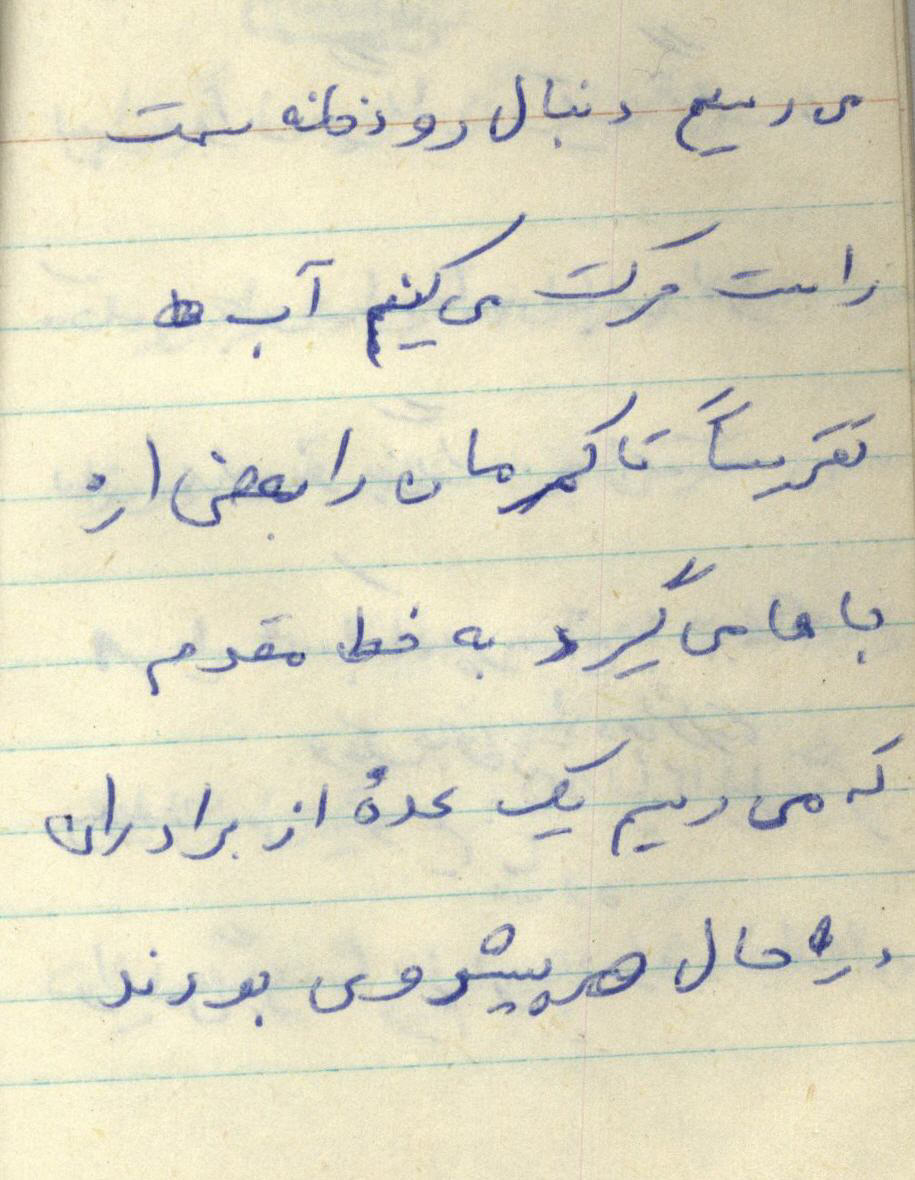 می رسیم دنبال رودخانه سمت
راست حرکت می کنیم آب
تقریباً تا کمرمان را بعضی از
جا ها می گیرد به خط مقدم
که می رسیم یک عدهٔ از برادران
در حال پیشروی بودند